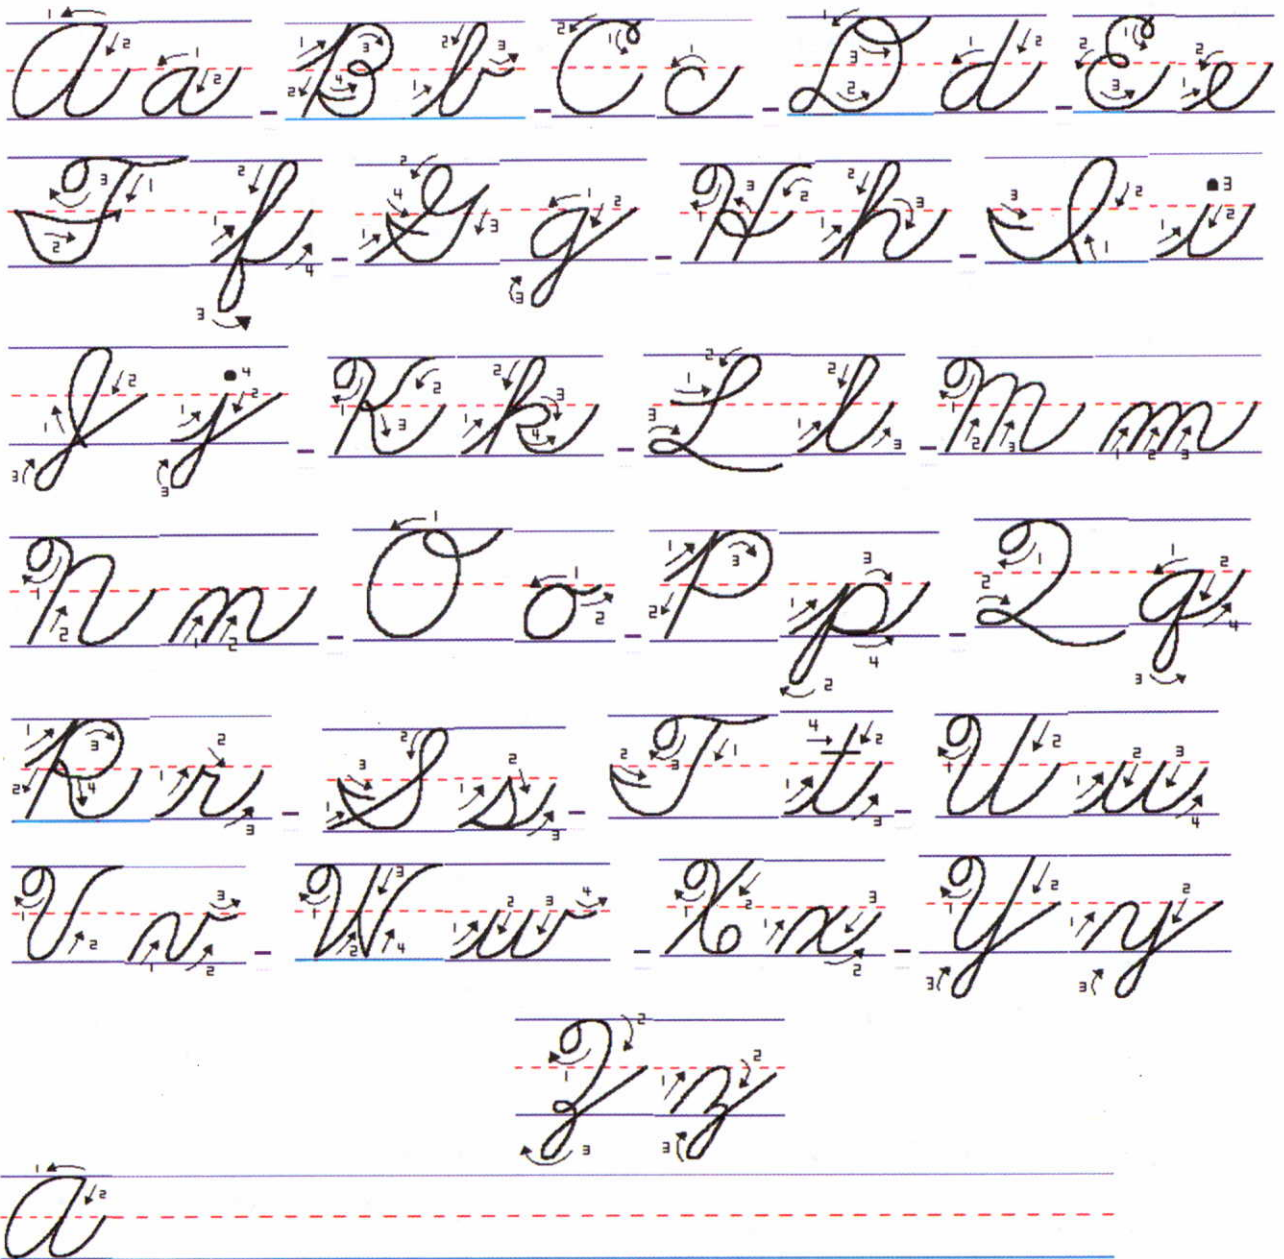 A a - B b - C c - D d - E e
F f - G g - H h - I i
J j - K k - L l - M m
N n - O o - P p - Q q
R r - S s - T t - U u
V v - W w - X x - Y y
Z z
A